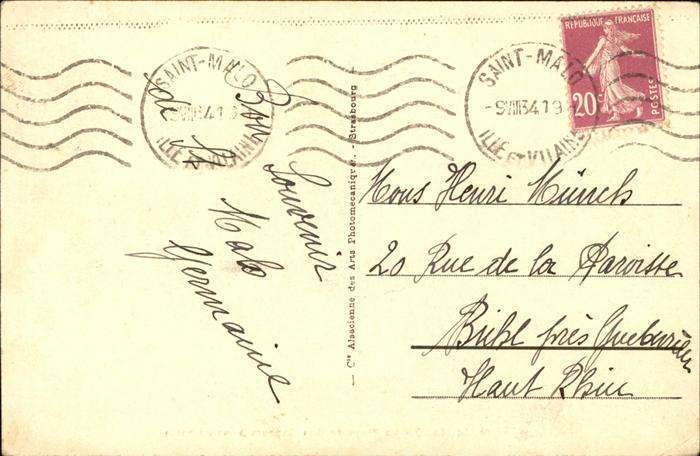 SAINT-MALO
-9 VIII 34 19
ILLE ET VILAINE
SAINT-MALO
-9 VIII 34 19
ILLE ET VILAINE
REPUBLIQUE FRANÇAISE
20c
POSTES
Bon
Souvenir
de St
Malo
Germaine
— Cie Alsacienne des Arts Photomécaniques, - Strasbourg
Mons Henri Münch
20 Rue de la Paroisse
Bühl près Guebwiller
Haut Rhin